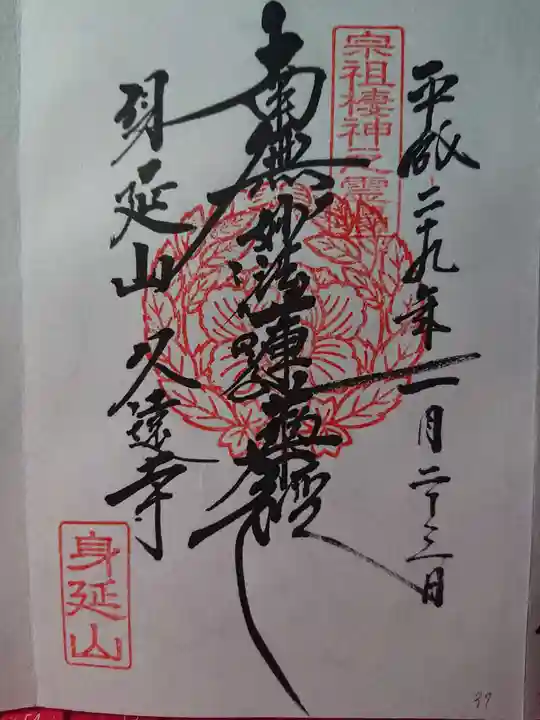 宗祖棲神之霊
平成二十九年一月二十三日
南無妙法蓮華經
身延山久遠寺
身延山